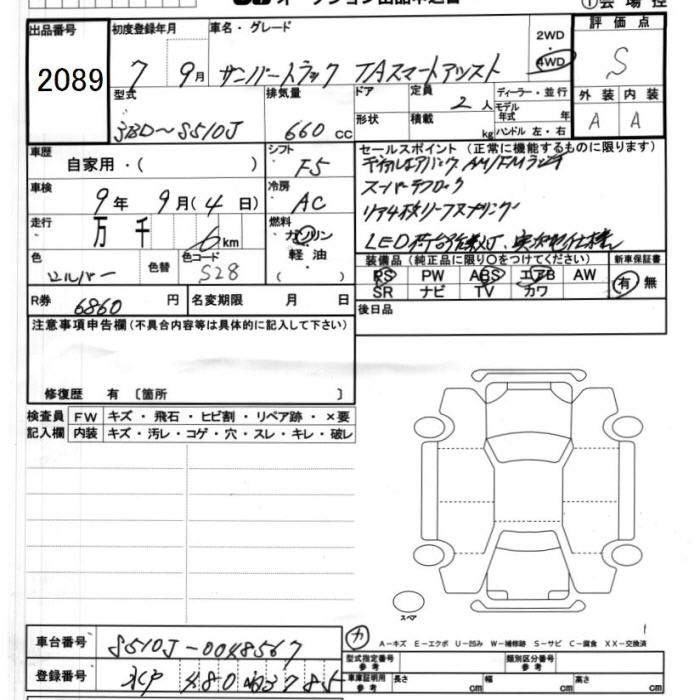 オークション出品申込書
①会場控
出品番号 2089
初度登録年月 7年 9月
車名・グレード サンバートラック TAスマートアシスト
2WD
4WD
評価点 S
外装 A 内装 A
型式 3BD〜S510J
排気量 660 cc
ドア
形状
定員 2人
積載 kg
ディーラー・並行
モデル年式 年
ハンドル 左・右
車歴 自家用・( )
シフト F5
車検 9年 9月(4日)
冷房 AC
走行 万 千 6 km
燃料 ガソリン
軽油・
( )
色 シルバー 色替
色コード S28
R券 6860円 名変期限 月 日
セールスポイント(正常に機能するものに限ります)
AM/FMラジオ
スーパーデフロック
リア4枚リーフスプリング
LED荷台作業灯.
装備品(純正品に限り○をつけてください)
PS PW ABS エアB AW
SR ナビ TV カワ
新車保証書
有 無
後日品
注意事項申告欄(不具合内容等は具体的に記入して下さい)
修復歴 有 〔箇所 〕
検査員記入欄
FW キズ・飛石・ヒビ割・リペア跡・×要
内装 キズ・汚レ・コゲ・穴・スレ・キレ・破レ
スペア
車台番号 S510J-0048567
登録番号 水戸 480
カ
A-キズ E-エクボ U-凹み W-補修跡 S-サビ C-腐食 XX-交換済
1
型式指定番号 参考
類別区分番号 参考
車庫証明用 参考 長さ cm 幅 cm 高さ cm